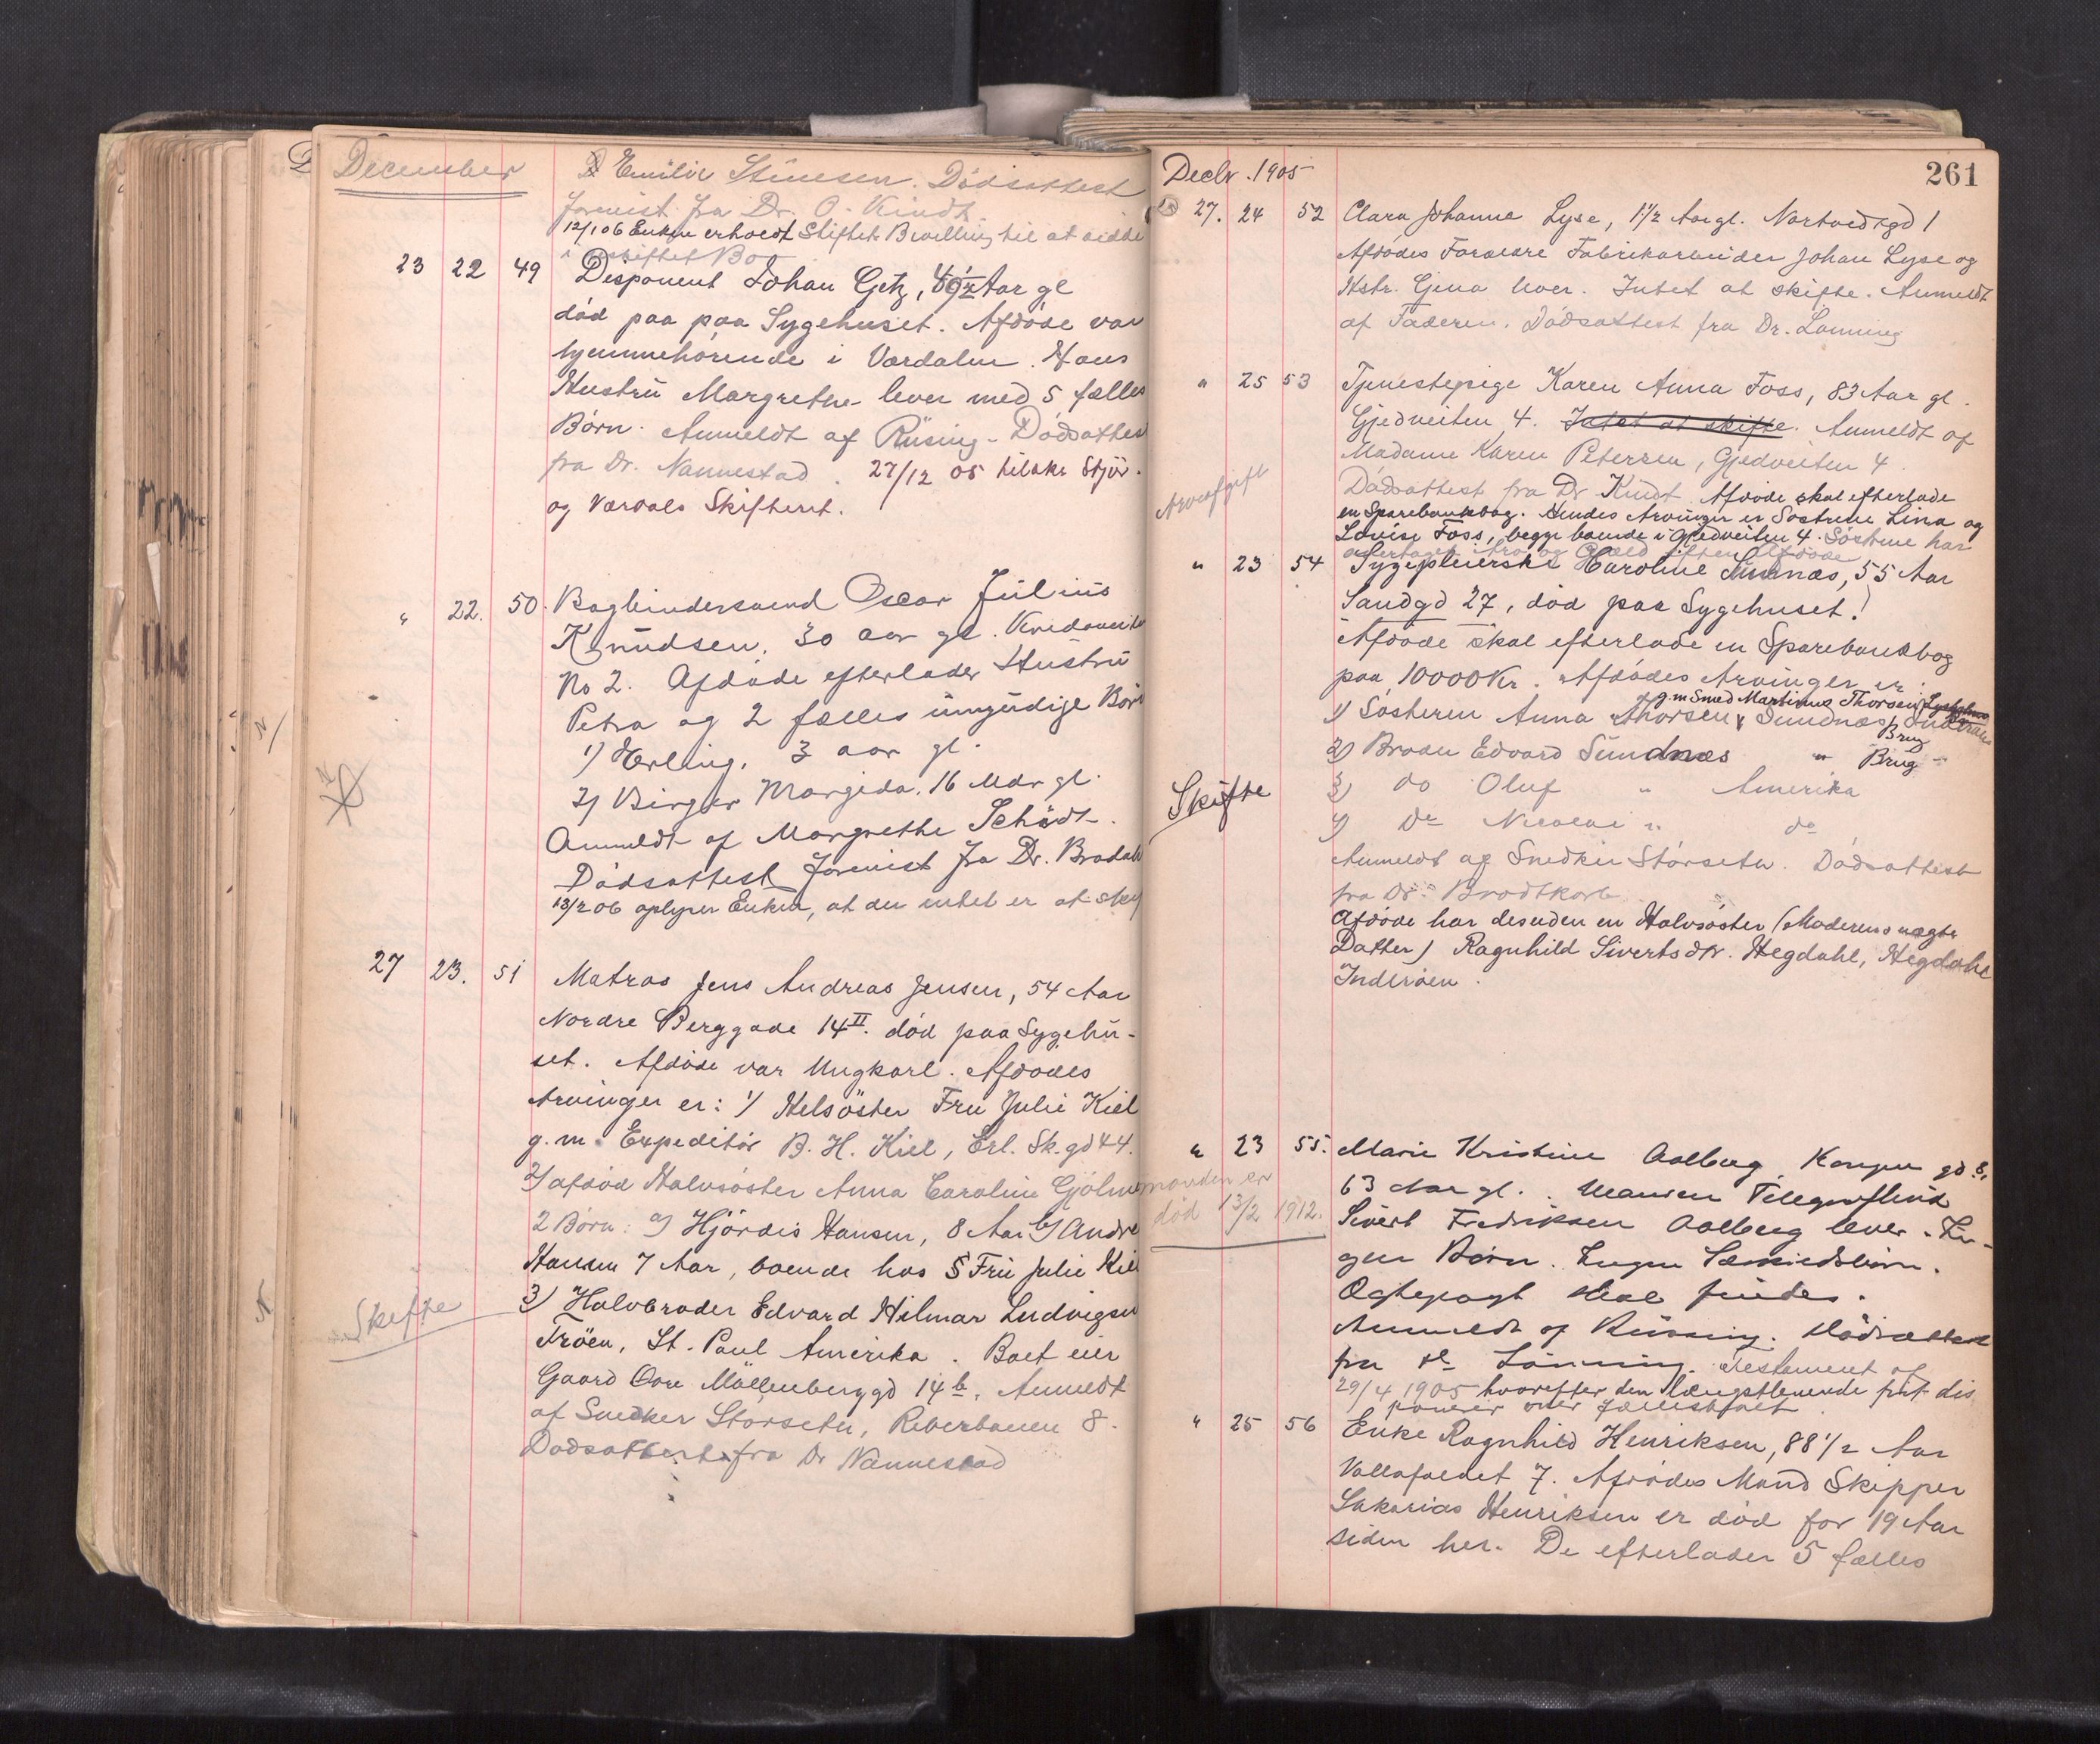 December
Emilie Stensen. Dødsattest
forevist fra Dr. O. Kindt.
12/1 06 Enken erholdt Skiftets Bevilling til at sidde
i uskiftet Bo
23 22 49 Disponent Johan Getz, 49½ Aar gl
död paa paa Sygehuset. Afdøde var
hjemmehørende i Værdalen. Hans
Hustru Margrethe lever med 5 fælles
Børn. Anmeldt af Rüsing. Dødsattest
fra Dr. Nannestad. 27/12 05 tilskr. Stjør.
og Værdals Skifteret.
" 22. 50. Bogbindersvend Oscar Julius
Knudsen, 30 aar gl.
No 2. Afdøde efterlader Hustru
Petra og 2 fælles umyndige Børn
1) Erling, 3 aar gl.
2) Birger 16 Mdr gl.
Anmeldt af Margrethe Schödt.
Dødsattest forevist fra Dr.
13/2 06 oplyser Enken, at der intet er at
27 23. 51 Matros Jens Andreas Jensen, 54 Aar
Nordre Berggade 14 II. död paa Sygehu-
set. Afdøde var Ungkarl. Afdødes
Arvinger er: 1) Helsøster Fru Julie Kiel
g. m. Expeditör B. H. Kiel, Erl. Sk. gd 44.
2) afdød Halvsøster Anna Caroline
2 Børn: a) Hjördis Hansen, 8 Aar b)
Hansen 7 Aar, boende hos Fru Julie Kiel
3) Halvbroder Edvard Hilmar Ludvigsen
Fröen, St. Paul Amerika. Boet eier
Skifte
Gaard Övre Møllenberggd 14 b. Anmeldt
af Snedker Störseth, 8.
Dødsattest fra Dr Nannestad
Decbr. 1905
261
27. 24 52 Clara Johanna Lyse, 1½ Aar gl. gd 1
Afdødes Forældre Fabrikarbeider Johan Lyse og
Hstr. Gjena lever. Intet at skifte. Anmeldt
af Faderen. Dødsattest fra Dr. Lönning
" 25 53 Tjenestepige Karen Anna Foss, 83 Aar gl.
Gjedveiten 4. Intet at skifte. Anmeldt af
Madame Karen Petersen, Gjedveiten 4.
Arveafgift
Dødsattest fra Dr Kindt. Afdøde skal efterlade
en Sparebankbog. Hendes Arvinger er Søstrene Lina og
Lovise Foss, begge boende i Gjedveiten 4. Søstrene har
overtaget Arv og Gjæld efter Afdøde
" 23 54 Sygepleierske Karoline Sundnæs, 55 Aar
Sandgd 27, død paa Sygehuset.
Afdøde skal efterlade en Sparebankbog
paa 10000 Kr. Afdødes Arvinger er:
g. m Smed Martinus Thorsen
1) Søsteren Anna Thorsen, Sundnæs,
Brug
2) Broder Edvard Sundnæs " Brug "
3) do Oluf " Amerika
Skifte
4) Do Nicolai " do
Anmeldt af Snedker Störseth. Dødsattest
fra Dr. Brodtkorb
Afdøde har desuden en Halvsøster (Moderens uægte
Datter) Ragnhild Sivertsdtr. Hegdahl, Hegdahl
Inderøen.
" 23 55. Marie Kristine Aalberg, gd 8,
63 Aar gl. Manden
Sivert Fredriksen Aalberg lever. In-
manden er
död 13/2 1912.
gen Børn. Ingen Særkuldsbörn.
Ægtepagt skal findes.
Anmeldt af Rüsing. Dødsattest
fra Dr Lönning. Testament af
29/4 1905 hvorefter den længstlevende frit dis
ponerer over Fællesboet
" 25 56 Enke Ragnhild Henriksen, 88 1/2 Aar
Vollafaldet 7. Afdødes Mand Skipper
Sakarias Henriksen er død for 19 Aar
siden her. De efterlader 5 fælles